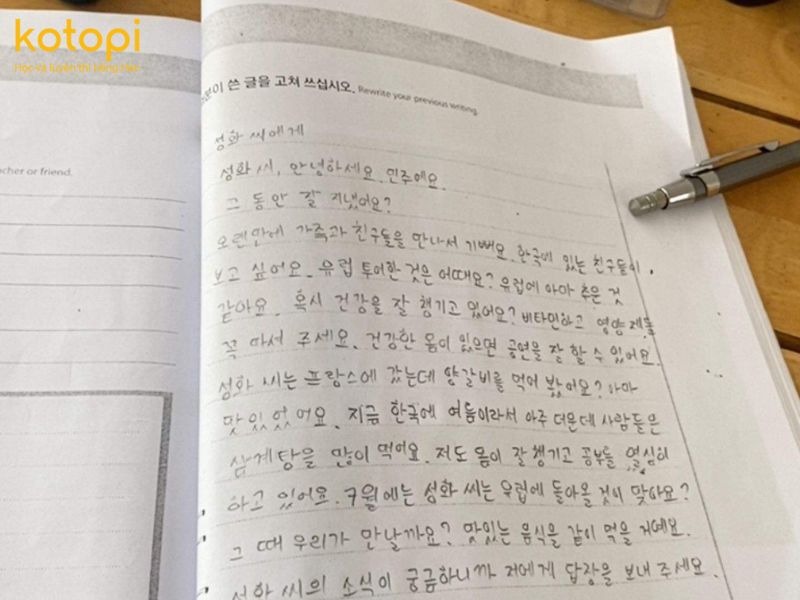 kotopi
Học và luyện thi tiếng Hàn
쓴 글을 고쳐 쓰십시오. Rewrite your previous writing.
or friend.
성화 씨에게
성화 씨, 안녕하세요. 민주예요.
그 동안 잘 지냈어요?
오랜만에 가족과 친구들을 만나서 기뻐요. 한국에 있는 친구들이
보고 싶어요. 유럽 투어한 것은 어때요? 유럽에 아마 추운 것
같아요. 혹시 건강을 잘 챙기고 있어요? 비타민하고 영양제를
꼭 따서 주세요. 건강한 몸이 있으면 공연을 잘 할 수 있어요.
성화 씨는 프랑스에 갔는데 양갈비를 먹어 봤어요? 아마
맛있었어요. 지금 한국에 여름이라서 아주 더운데 사람들은
삼계탕을 많이 먹어요. 저도 몸이 잘 챙기고 공부를 열심히
하고 있어요. 7월에는 성화 씨는 유럽에 돌아올 것이 맞아요?
그 때 우리가 만날까요? 맛있는 음식을 같이 먹을 거예요.
성화 씨의 소식이 궁금하니까 저에게 답장을 보내 주세요.